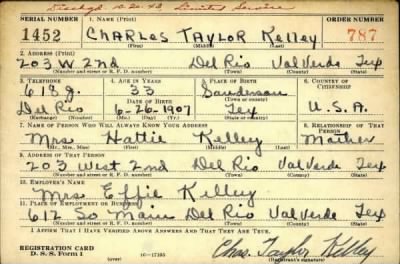 Dischgd. 10-20-43 Limited Service
SERIAL NUMBER 1. NAME (Print) ORDER NUMBER
1452 CHARLES TAYLOR Kelley 787
(First) (Middle) (Last)
2. ADDRESS (Print)
203 W 2nd Del Rio Val Verde Tex
(Number and street or R. F. D. number) (Town) (County) (State)
3. TELEPHONE 4. AGE IN YEARS 5. PLACE OF BIRTH 6. COUNTRY OF CITIZENSHIP
618J. 33 Sanderson
DATE OF BIRTH (Town or county)
Del Rio 6-26-1907 Tex U.S.A.
(Exchange) (Number) (Mo.) (Day) (Yr.) (State or country)
7. NAME OF PERSON WHO WILL ALWAYS KNOW YOUR ADDRESS 8. RELATIONSHIP OF THAT PERSON
Mrs Hattie Kelley Mother
(Mr., Mrs., Miss) (First) (Middle) (Last)
9. ADDRESS OF THAT PERSON
203 West 2nd Del Rio Val Verde Tex
(Number and street or R. F. D. number) (Town) (County) (State)
10. EMPLOYER'S NAME
Mrs Effie Kelley
11. PLACE OF EMPLOYMENT OR BUSINESS
612 So Main Del Rio Val Verde Tex
(Number and street or R. F. D. number) (Town) (County) (State)
I AFFIRM THAT I HAVE VERIFIED ABOVE ANSWERS AND THAT THEY ARE TRUE.
REGISTRATION CARD
D. S. S. Form 1 (over) 16-17105 Chas. Taylor Kelley
(Registrant's signature)